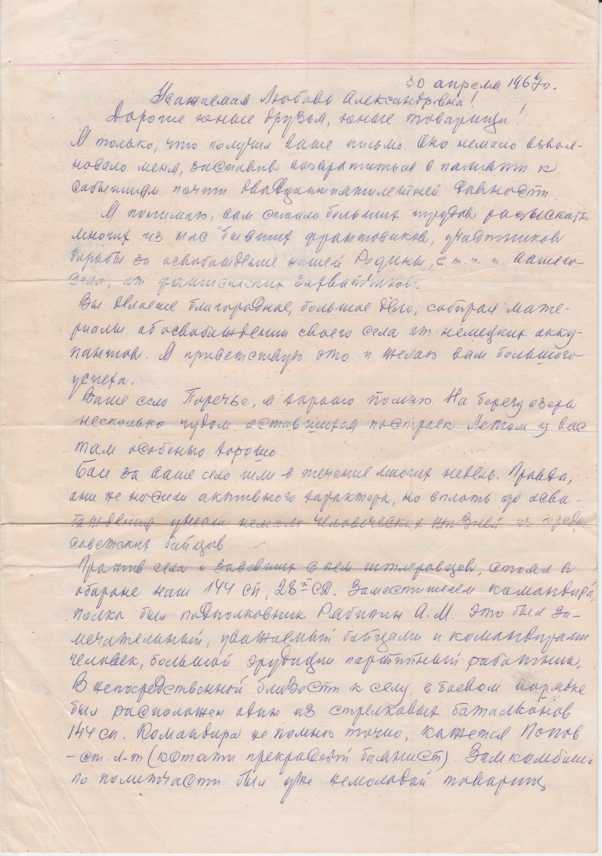 30 апреля 1967г.
Уважаемая Любовь Александровна!
Дорогие юные друзья, юные товарищи!
Я только, что получил ваше письмо. Оно немало взвол-
новало меня, заставив возвратиться в памяти к
событиям почти двадцатипятилетней давности.
Я понимаю, вам стоило больших трудов разыскать
многих из нас бывших фронтовиков, участников
борьбы за освобождение нашей Родины, с т.ч. и вашего
села, от фашистских захватчиков.
Вы делаете благородное, большое дело, собирая мате-
риалы об освобождении своего села от немецких окку-
пантов. Я приветствую это и желаю вам большого
успеха.
Ваше село Поречье, я хорошо помню. На берегу озера
несколько чудом оставшихся построек. Летом у вас
там особенно хорошо.
Бои за ваше село шли в течение многих недель. Правда,
они не носили активного характера, но вплоть до осво-
бождения унесли немало человеческих жизней из среды
советских бойцов.
Против села и засевших в нем гитлеровцев, стоял в
обороне наш 144 сп, 28й сд. Заместителем командира
полка был подполковник Рабинин А.М. Это был за-
мечательный, уважаемый бойцами и командирами
человек, большой эрудиции партийный работник.
В непосредственной близости к селу, в боевом порядке
был расположен один из стрелковых батальонов
144 сп. Командира не помню точно, кажется Попов
- ст. л-т (кстати прекрасный баянист). Замкомбата
по политчасти был уже немолодой товарищ,